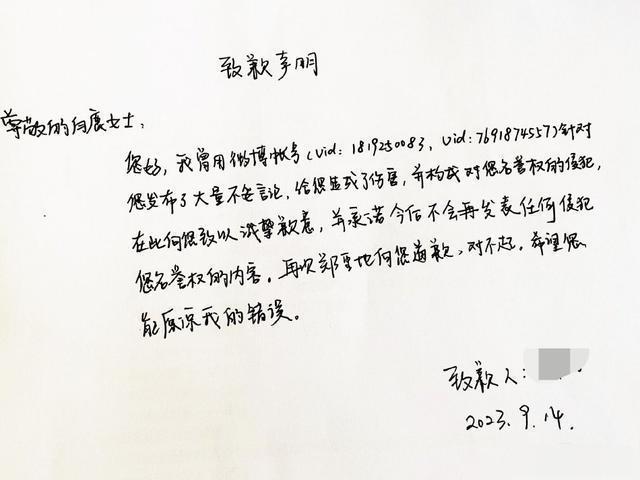 致歉声明
尊敬的白鹿女士：
您好，我曾用微博帐号（uid：1819250083，uid：7691874557）针对
您发布了大量不妥言论，给您造成了伤害，并构成对您名誉权的侵犯，
在此向您致以诚挚歉意，并承诺今后不会再发表任何侵犯
您名誉权的内容。再次郑重地向您道歉，对不起，希望您
能原谅我的错误。
致歉人：
2023.9.14.